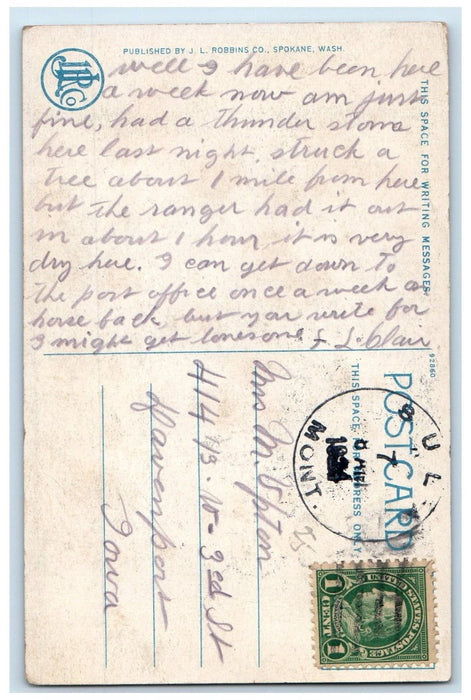 PUBLISHED BY J. L. ROBBINS CO., SPOKANE, WASH.
JLR Co
well I have been here
a week now am just
fine, had a thunder storm
here last night, struck a
tree about 1 mile from here
but the ranger had it out
in about 1 hour, it is very
dry here. I can get down to
the post office once a week on
horse back, but you write for
I might get lonesome
THIS SPACE FOR WRITING MESSAGES
92860
POST CARD
THIS SPACE FOR ADDRESS ONLY
MONT.
7
Mrs M. Upton
414 1/3 W-3rd St
Davenport
Iowa
UNITED STATES POSTAGE
1 CENT 1